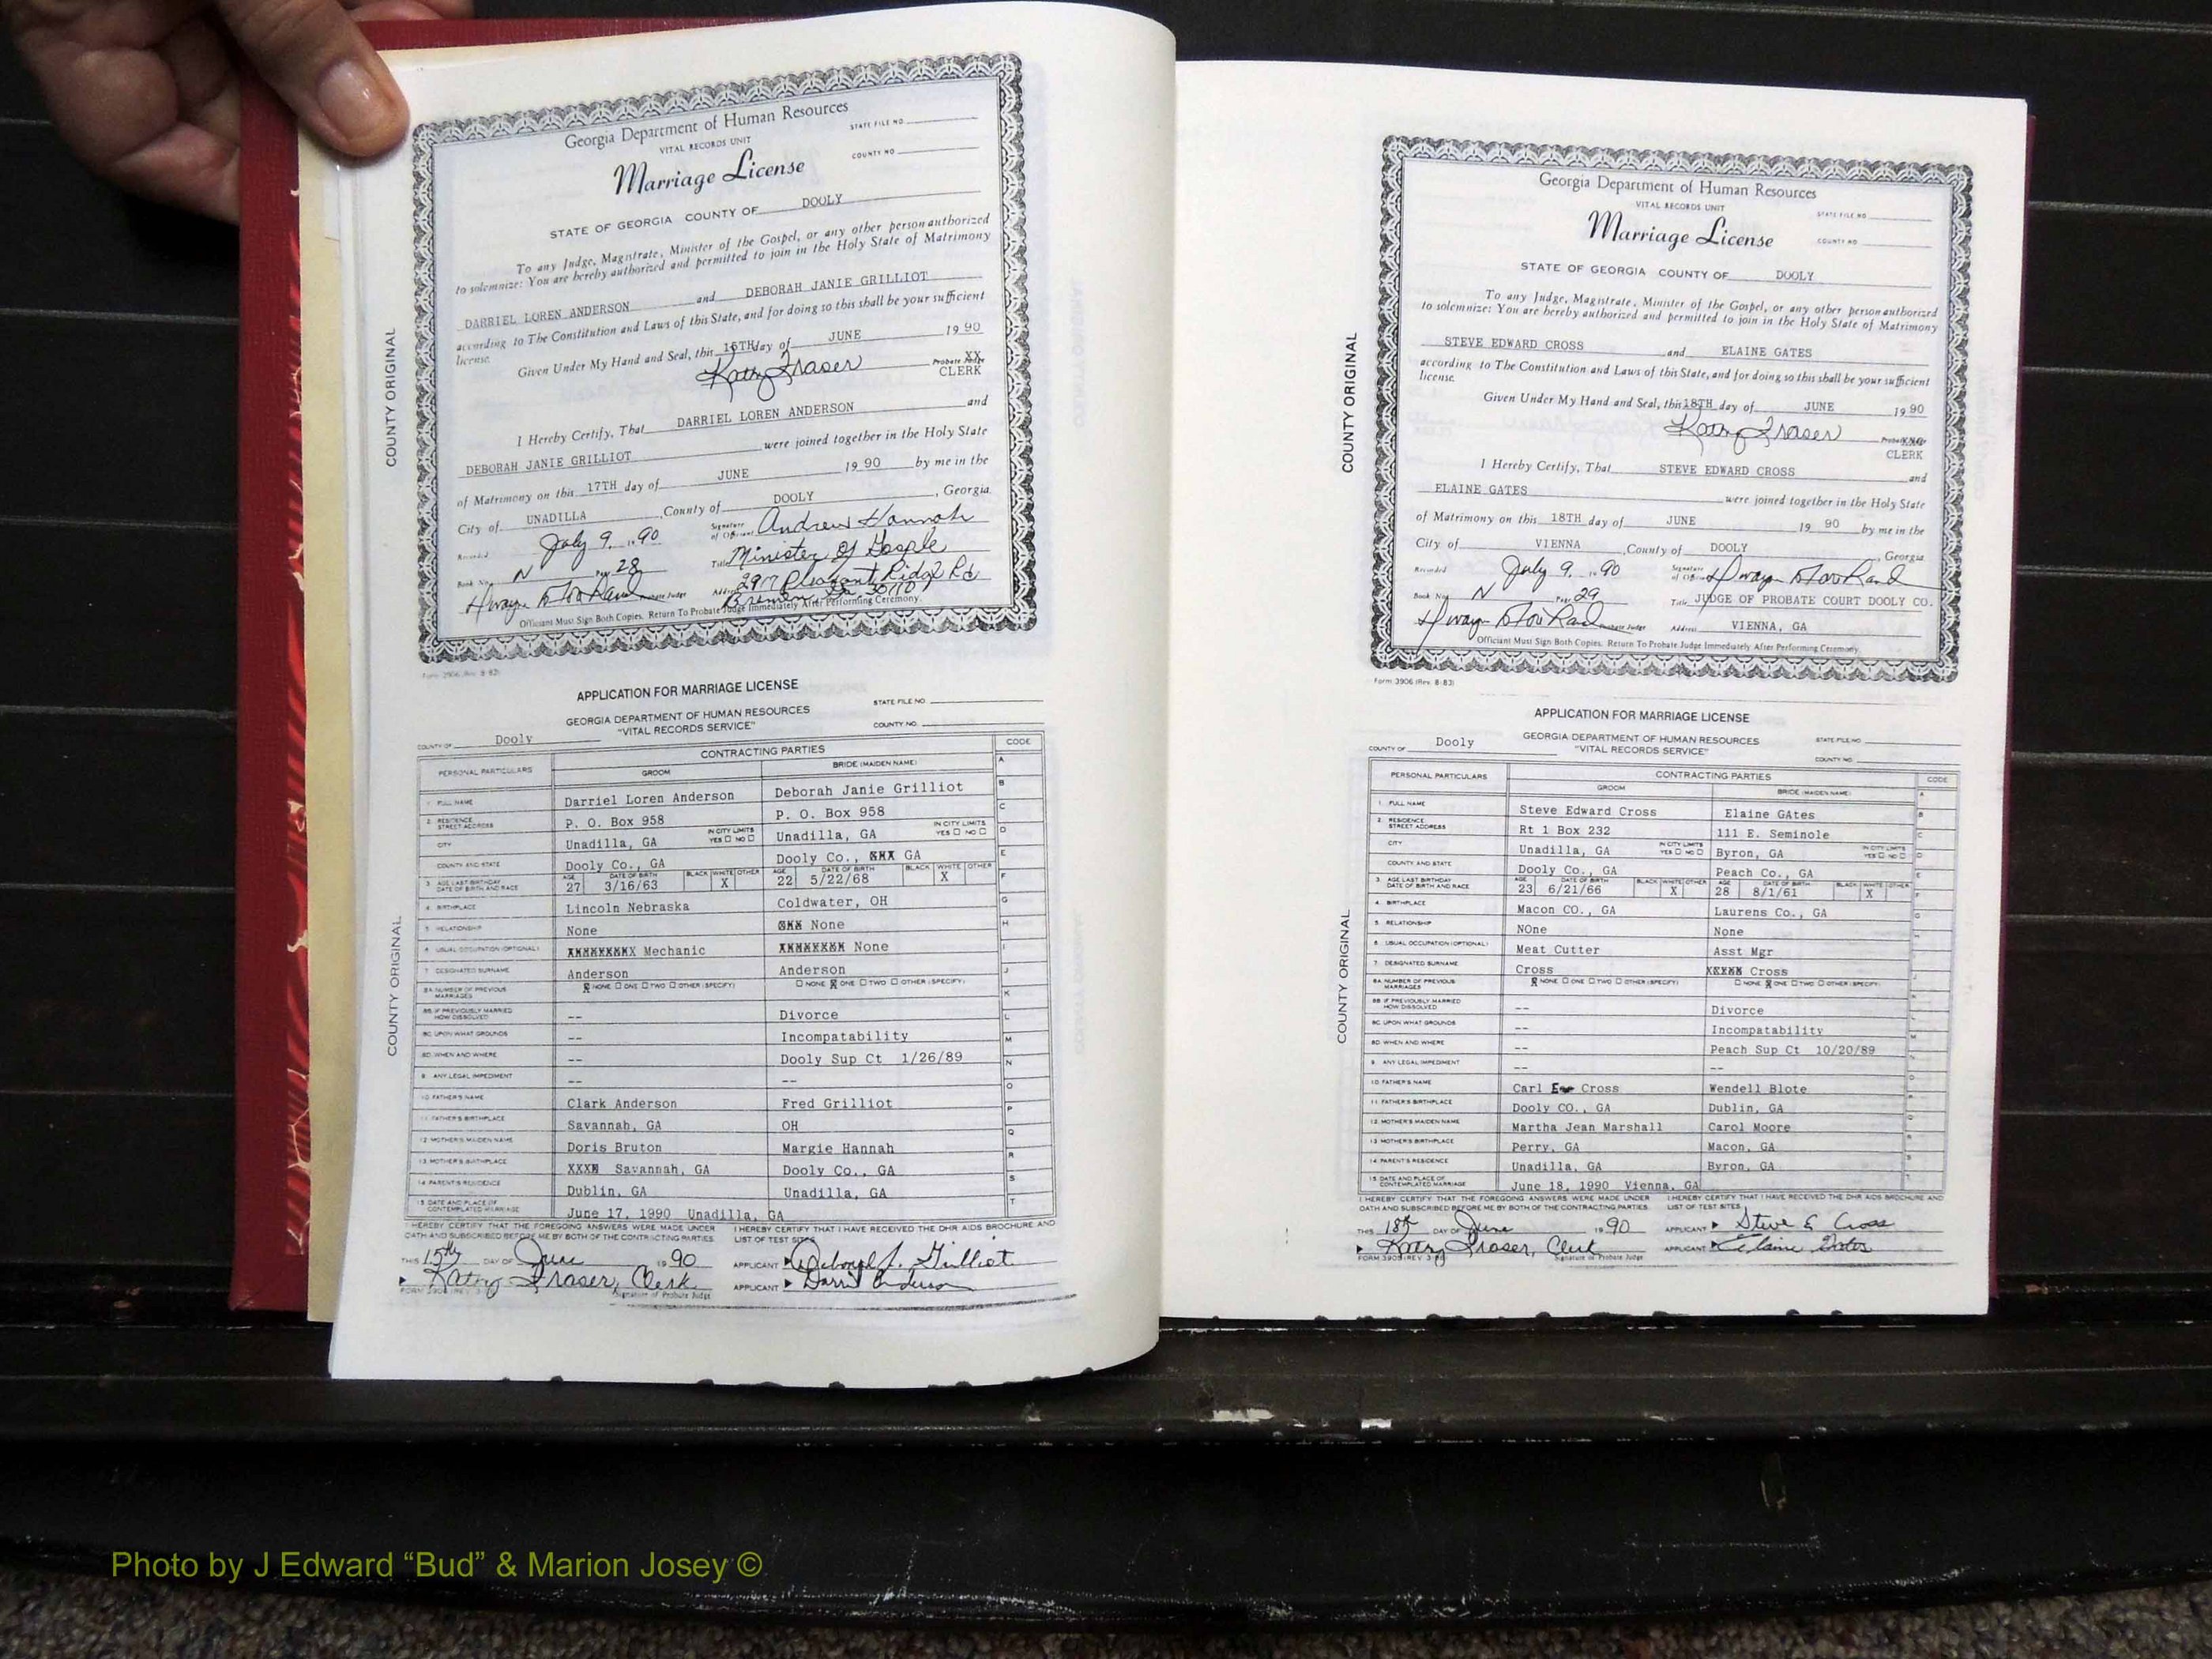 Georgia Department of Human Resources
VITAL RECORDS UNIT
STATE FILE NO.
Marriage License
COUNTY NO.
STATE OF GEORGIA COUNTY OF DOOLY
To any Judge, Magistrate, Minister of the Gospel, or any other person authorized
to solemnize: You are hereby authorized and permitted to join in the Holy State of Matrimony
DARRIEL LOREN ANDERSON and DEBORAH JANIE GRILLIOT
according to The Constitution and Laws of this State, and for doing so this shall be your sufficient
license.
Given Under My Hand and Seal, this 15TH day of JUNE 19 90
Kathy Fraser Probate Judge XX
CLERK
I Hereby Certify, That DARRIEL LOREN ANDERSON and
DEBORAH JANIE GRILLIOT were joined together in the Holy State
of Matrimony on this 17TH day of JUNE 19 90 by me in the
City of UNADILLA, County of DOOLY, Georgia.
Recorded July 9, 1990 Signature of Official Andrew Hannah
Book No. N Page 28 Title Minister Of Gosple
Address 2917 Pleasant Ridge Rd
Probate Judge Bremen, Ga.
Officiant Must Sign Both Copies. Return To Probate Judge Immediately After Performing Ceremony.
COUNTY ORIGINAL
Form 3906 (Rev. 8-83)
APPLICATION FOR MARRIAGE LICENSE
GEORGIA DEPARTMENT OF HUMAN RESOURCES
STATE FILE NO.
"VITAL RECORDS SERVICE"
COUNTY NO.
COUNTY OF Dooly
PERSONAL PARTICULARS CONTRACTING PARTIES CODE
GROOM BRIDE (MAIDEN NAME) A
1. FULL NAME Darriel Loren Anderson Deborah Janie Grilliot B
2. RESIDENCE STREET ADDRESS P. O. Box 958 P. O. Box 958 C
CITY Unadilla, GA IN CITY LIMITS YES ☐ NO ☐ Unadilla, GA IN CITY LIMITS YES ☐ NO ☐ D
COUNTY AND STATE Dooly Co., GA Dooly Co., GA E
3. AGE LAST BIRTHDAY DATE OF BIRTH AND RACE AGE 27 DATE OF BIRTH 3/16/63 BLACK WHITE X OTHER AGE 22 DATE OF BIRTH 5/22/68 BLACK WHITE X OTHER F
4. BIRTHPLACE Lincoln Nebraska Coldwater, OH G
5. RELATIONSHIP None None H
6. USUAL OCCUPATION (OPTIONAL) XXXXXXXXX Mechanic XXXXXXXX None I
7. DESIGNATED SURNAME Anderson Anderson J
8A. NUMBER OF PREVIOUS MARRIAGES ☒ NONE ☐ ONE ☐ TWO ☐ OTHER (SPECIFY) ☐ NONE ☒ ONE ☐ TWO ☐ OTHER (SPECIFY) K
8B. IF PREVIOUSLY MARRIED HOW DISSOLVED -- Divorce L
8C. UPON WHAT GROUNDS -- Incompatability M
8D. WHEN AND WHERE -- Dooly Sup Ct 1/26/89 N
9. ANY LEGAL IMPEDIMENT -- -- O
10. FATHER'S NAME Clark Anderson Fred Grilliot P
11. FATHER'S BIRTHPLACE Savannah, GA OH Q
12. MOTHER'S MAIDEN NAME Doris Bruton Margie Hannah R
13. MOTHER'S BIRTHPLACE XXXX Savannah, GA Dooly Co., GA S
14. PARENT'S RESIDENCE Dublin, GA Unadilla, GA T
15. DATE AND PLACE OF CONTEMPLATED MARRIAGE June 17, 1990 Unadilla, GA
I HEREBY CERTIFY THAT THE FOREGOING ANSWERS WERE MADE UNDER
OATH AND SUBSCRIBED BEFORE ME BY BOTH OF THE CONTRACTING PARTIES.
I HEREBY CERTIFY THAT I HAVE RECEIVED THE DHR AIDS BROCHURE AND
LIST OF TEST SITES.
THIS 15th DAY OF June 1990 APPLICANT Deborah J. Grilliot
Kathy Fraser, Clerk APPLICANT Darriel Anderson
Signature of Probate Judge
COUNTY ORIGINAL
Georgia Department of Human Resources
VITAL RECORDS UNIT
STATE FILE NO.
Marriage License
COUNTY NO.
STATE OF GEORGIA COUNTY OF DOOLY
To any Judge, Magistrate, Minister of the Gospel, or any other person authorized
to solemnize: You are hereby authorized and permitted to join in the Holy State of Matrimony
STEVE EDWARD CROSS and ELAINE GATES
according to The Constitution and Laws of this State, and for doing so this shall be your sufficient
license.
Given Under My Hand and Seal, this 18TH day of JUNE 19 90
Kathy Fraser Probate Judge
CLERK
I Hereby Certify, That STEVE EDWARD CROSS and
ELAINE GATES were joined together in the Holy State
of Matrimony on this 18TH day of JUNE 19 90 by me in the
City of VIENNA, County of DOOLY, Georgia
Recorded July 9, 1990 Signature of Official
Book No. N Page 29 Title JUDGE OF PROBATE COURT DOOLY CO.
Probate Judge Address VIENNA, GA
Officiant Must Sign Both Copies. Return To Probate Judge Immediately After Performing Ceremony.
COUNTY ORIGINAL
Form 3906 (Rev. 8-83)
APPLICATION FOR MARRIAGE LICENSE
GEORGIA DEPARTMENT OF HUMAN RESOURCES
STATE FILE NO.
"VITAL RECORDS SERVICE"
COUNTY NO.
COUNTY OF Dooly
PERSONAL PARTICULARS CONTRACTING PARTIES CODE
GROOM BRIDE (MAIDEN NAME) A
1. FULL NAME Steve Edward Cross Elaine GAtes B
2. RESIDENCE STREET ADDRESS Rt 1 Box 232 111 E. Seminole C
CITY Unadilla, GA IN CITY LIMITS YES ☐ NO ☐ Byron, GA IN CITY LIMITS YES ☐ NO ☐ D
COUNTY AND STATE Dooly Co., GA Peach Co., GA E
3. AGE LAST BIRTHDAY DATE OF BIRTH AND RACE AGE 23 DATE OF BIRTH 6/21/66 BLACK WHITE X OTHER AGE 28 DATE OF BIRTH 8/1/61 BLACK WHITE X OTHER F
4. BIRTHPLACE Macon CO., GA Laurens Co., GA G
5. RELATIONSHIP NOne None
6. USUAL OCCUPATION (OPTIONAL) Meat Cutter Asst Mgr
7. DESIGNATED SURNAME Cross XXXXX Cross
8A. NUMBER OF PREVIOUS MARRIAGES ☒ NONE ☐ ONE ☐ TWO ☐ OTHER (SPECIFY) ☐ NONE ☒ ONE ☐ TWO ☐ OTHER (SPECIFY)
8B. IF PREVIOUSLY MARRIED HOW DISSOLVED -- Divorce
8C. UPON WHAT GROUNDS -- Incompatability
8D. WHEN AND WHERE -- Peach Sup Ct 10/20/89
9. ANY LEGAL IMPEDIMENT -- --
10. FATHER'S NAME Carl Cross Wendell Blote
11. FATHER'S BIRTHPLACE Dooly CO., GA Dublin, GA
12. MOTHER'S MAIDEN NAME Martha Jean Marshall Carol Moore
13. MOTHER'S BIRTHPLACE Perry, GA Macon, GA
14. PARENT'S RESIDENCE Unadilla, GA Byron, GA
15. DATE AND PLACE OF CONTEMPLATED MARRIAGE June 18, 1990 Vienna, GA
I HEREBY CERTIFY THAT THE FOREGOING ANSWERS WERE MADE UNDER
OATH AND SUBSCRIBED BEFORE ME BY BOTH OF THE CONTRACTING PARTIES.
I HEREBY CERTIFY THAT I HAVE RECEIVED THE DHR AIDS BROCHURE AND
LIST OF TEST SITES.
THIS 18th DAY OF June 1990 APPLICANT Steve E Cross
Kathy Fraser, Clerk APPLICANT Elaine Gates
Signature of Probate Judge
COUNTY ORIGINAL
Photo by J Edward “Bud” & Marion Josey ©